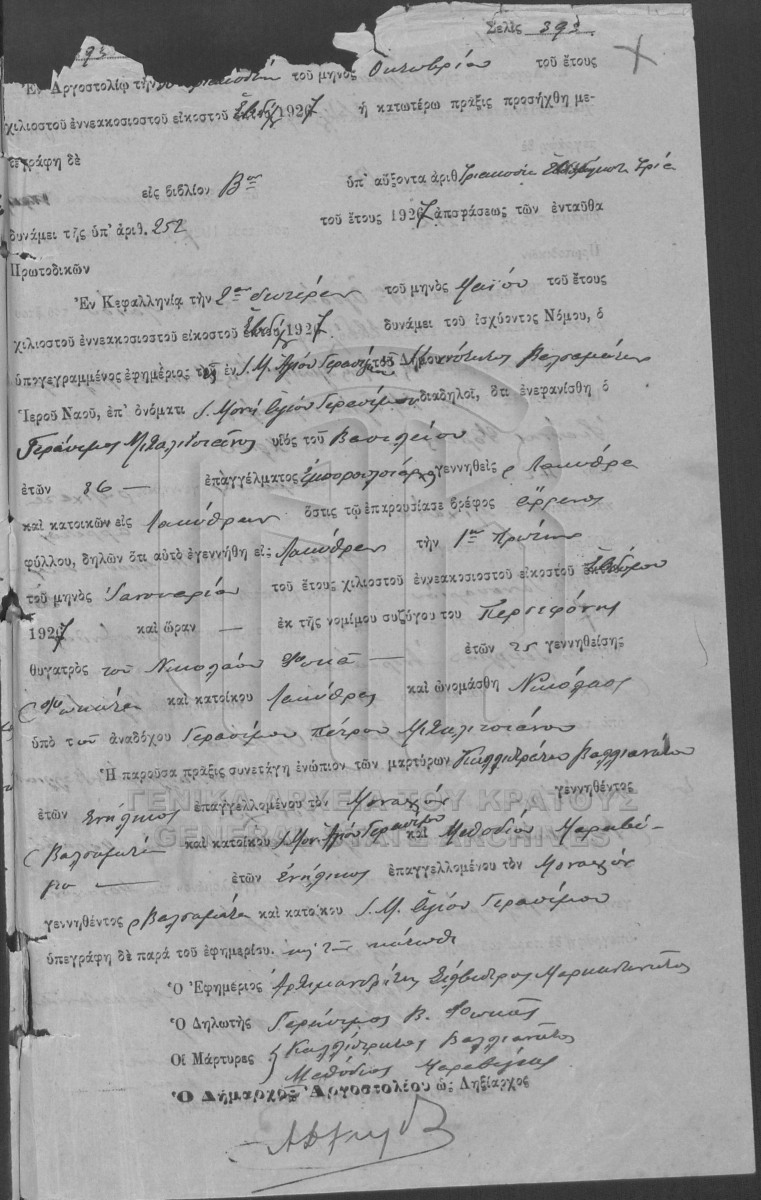 Σελὶς 393
393
Ἐν Ἀργοστολίῳ τὴν τοῦ μηνὸς Ὀκτωβρίου τοῦ ἔτους
χιλιοστοῦ ἐννεακοσιοστοῦ εἰκοστοῦ 1927 ἡ κατωτέρω πρᾶξις προσήχθη με-
τεγράφη δὲ
εἰς βιβλίον Βον ὑπ' αὔξοντα ἀριθ. τριακόσια τρία
δυνάμει τῆς ὑπ' ἀριθ. 252 τοῦ ἔτους 1927 ἀποφάσεως τῶν ἐνταῦθα
Πρωτοδικῶν
Ἐν Κεφαλληνίᾳ τὴν 2αν δευτέραν τοῦ μηνὸς Μαΐου τοῦ ἔτους
χιλιοστοῦ ἐννεακοσιοστοῦ εἰκοστοῦ 1927. δυνάμει τοῦ ἰσχύοντος Νόμου, ὁ
ὑπογεγραμμένος ἐφημέριος τῆς ἐν Ι. Μ. Ἁγίου Γερασίμου τοῦ Δήμου Βαλσαμάτων
Ἱεροῦ Ναοῦ, ἐπ' ὀνόματι Ι. Μονῆ Ἁγίου Γερασίμου διαδηλοῖ, ὅτι ἐνεφανίσθη ὁ
Γεράσιμος υἱὸς τοῦ Βασιλείου
ἐτῶν 36 — ἐπαγγέλματος γεννηθεὶς Λακύθρα
καὶ κατοικῶν εἰς Λακύθραν ὅστις τῷ ἐπαρουσίασε βρέφος ἄρρενος
φύλλου, δηλῶν ὅτι αὐτὸ ἐγεννήθη εἰς Λακύθραν τὴν 1ην πρώτην
τοῦ μηνὸς Ἰανουαρίου τοῦ ἔτους χιλιοστοῦ ἐννεακοσιοστοῦ εἰκοστοῦ ἑβδόμου
1927 καὶ ὥραν — ἐκ τῆς νομίμου συζύγου του Περσεφόνης
θυγατρὸς τοῦ Νικολάου Φωκᾶ — ἐτῶν 25 γεννηθείσης
καὶ κατοίκου Λακύθρας καὶ ὠνομάσθη Νικόλαος
ὑπὸ τοῦ ἀναδόχου Γερασίμου Πέτρου
Ἡ παροῦσα πρᾶξις συνετάγη ἐνώπιον τῶν μαρτύρων Καλλιστράτου Βαλλιανάτου
ἐτῶν ἐνήλικος ἐπαγγελλομένου τὸν Μοναχὸν γεννηθέντος
Βαλσαμάτα καὶ κατοίκου Ι. Μον. Ἁγίου Γερασίμου καὶ Μεθοδίου Μαραβέ-
για — ἐτῶν ἐνήλικος ἐπαγγελλομένου τὸν Μοναχὸν
γεννηθέντος Βαλσαμάτα καὶ κατοίκου Ι. Μ. Ἁγίου Γερασίμου
ὑπεγράφη δὲ παρὰ τοῦ ἐφημερίου.
Ὁ Ἐφημέριος Ἀρχιμανδρίτης Σίλβεστρος
Ὁ Δηλωτὴς Γεράσιμος Β. Φωκᾶς
Οἱ Μάρτυρες Καλλίστρατος Βαλλιανᾶτος
Μεθόδιος Μαραβέγιας
Ὁ Δήμαρχος Ἀργοστολίου ὡς Ληξίαρχος
ΓΕΝΙΚΑ ΑΡΧΕΙΑ ΤΟΥ ΚΡΑΤΟΥΣ
GENERAL STATE ARCHIVES